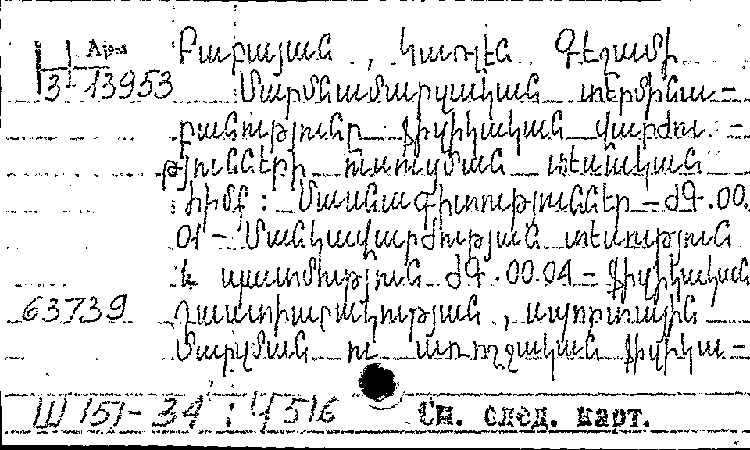 Арм
3-13953
Բաբայան , Կառլէն Գէղամի
Մարմնամարզական տերմինա-
բանությունը ֆիզիկական վարժու-
թյունների ուսուցման տեսական
հիմք : Մասնագիտություններ – ԺԳ.00.
01 – Մանկավարժության տեսություն
և պատմություն ԺԳ.00.04 – ֆիզիկական
63739 դաստիարակության , սպորտային
մարզման ու առողջական ֆիզիկա-
Ш 151-34 : 4516 См. след. карт.